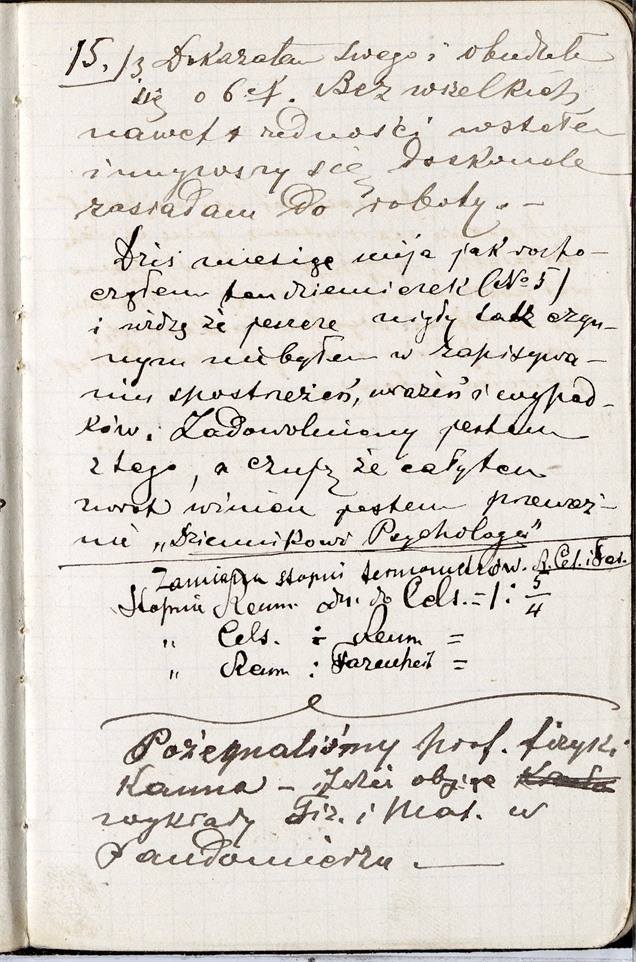 15./3 Dokazałem swego i obudziłem
się o 6 ej. Bez wszelkich
nawet trudności wstałem
i umywszy się doskonale
zasiadam do roboty. –
Dziś miesiąc mija jak rozpo-
cząłem ten dzienniczek (No 5)
i widzę że jeszcze nigdy tak czyn-
nym nie byłem w zapisywa-
niu spostrzeżeń, wrażeń i wypad-
ków. Zadowolniony jestem
z tego, a czuję że cały ten
zwrot winien jestem przeważ-
nie „Dziennikowi Psychologa"
Zamiana stopni termometrów. R. Cel. i Far.
Stopnie Reum. do Cels. = 1 : 5/4
„ Cels. : Reum =
„ Reum : Farenheit =
Pożegnaliśmy prof. fizyki
Kanna – Jedzie objąć
wykłady Fiz. i Mat. w
Sandomierzu. —